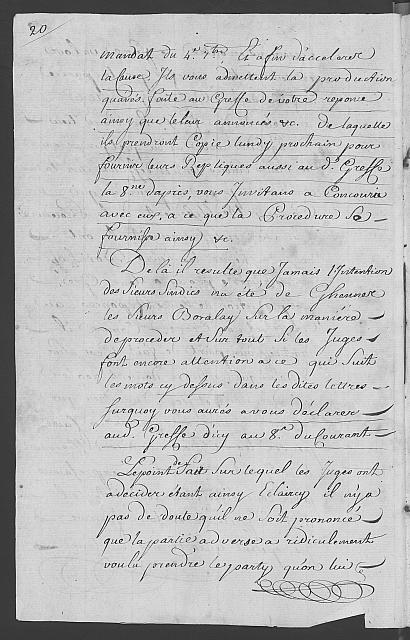 20
mandat du 4.e 7bre Et afin d'accelerer
la Cause Ils vous admettent la production
qu'avés faite au Greffe de votre reponse
ainsy que le leur annoncés &c. de laquelle
ils prendront Copie lundy prochain pour
fournir leurs Repliques aussi au d. Greffe
la 8.ne d'après, vous Invitans a Concourir
avec eux, a ce que la Procedure se
fournisse ainsy &c.
De là il resulte que Jamais l'Intention
des Sieurs Sindics n'a été de Ghenner
les Sieurs Boralay Sur la maniére
de proceder et Sur tout Si les Juges
font encore attention a ce qui Suit
les mots cy dessus dans les dites lettres
surquoy vous aurés a vous déclarer
aud. Greffe d'icy au 8.e du Courant
Le point de fait Sur lequel les Juges ont
a decider étant ainsy Eclaircy il n'y a
pas de doute qu'il ne Soit prononcé
que la partie adverse a ridiculement
voulu prendre le party qu'on lui